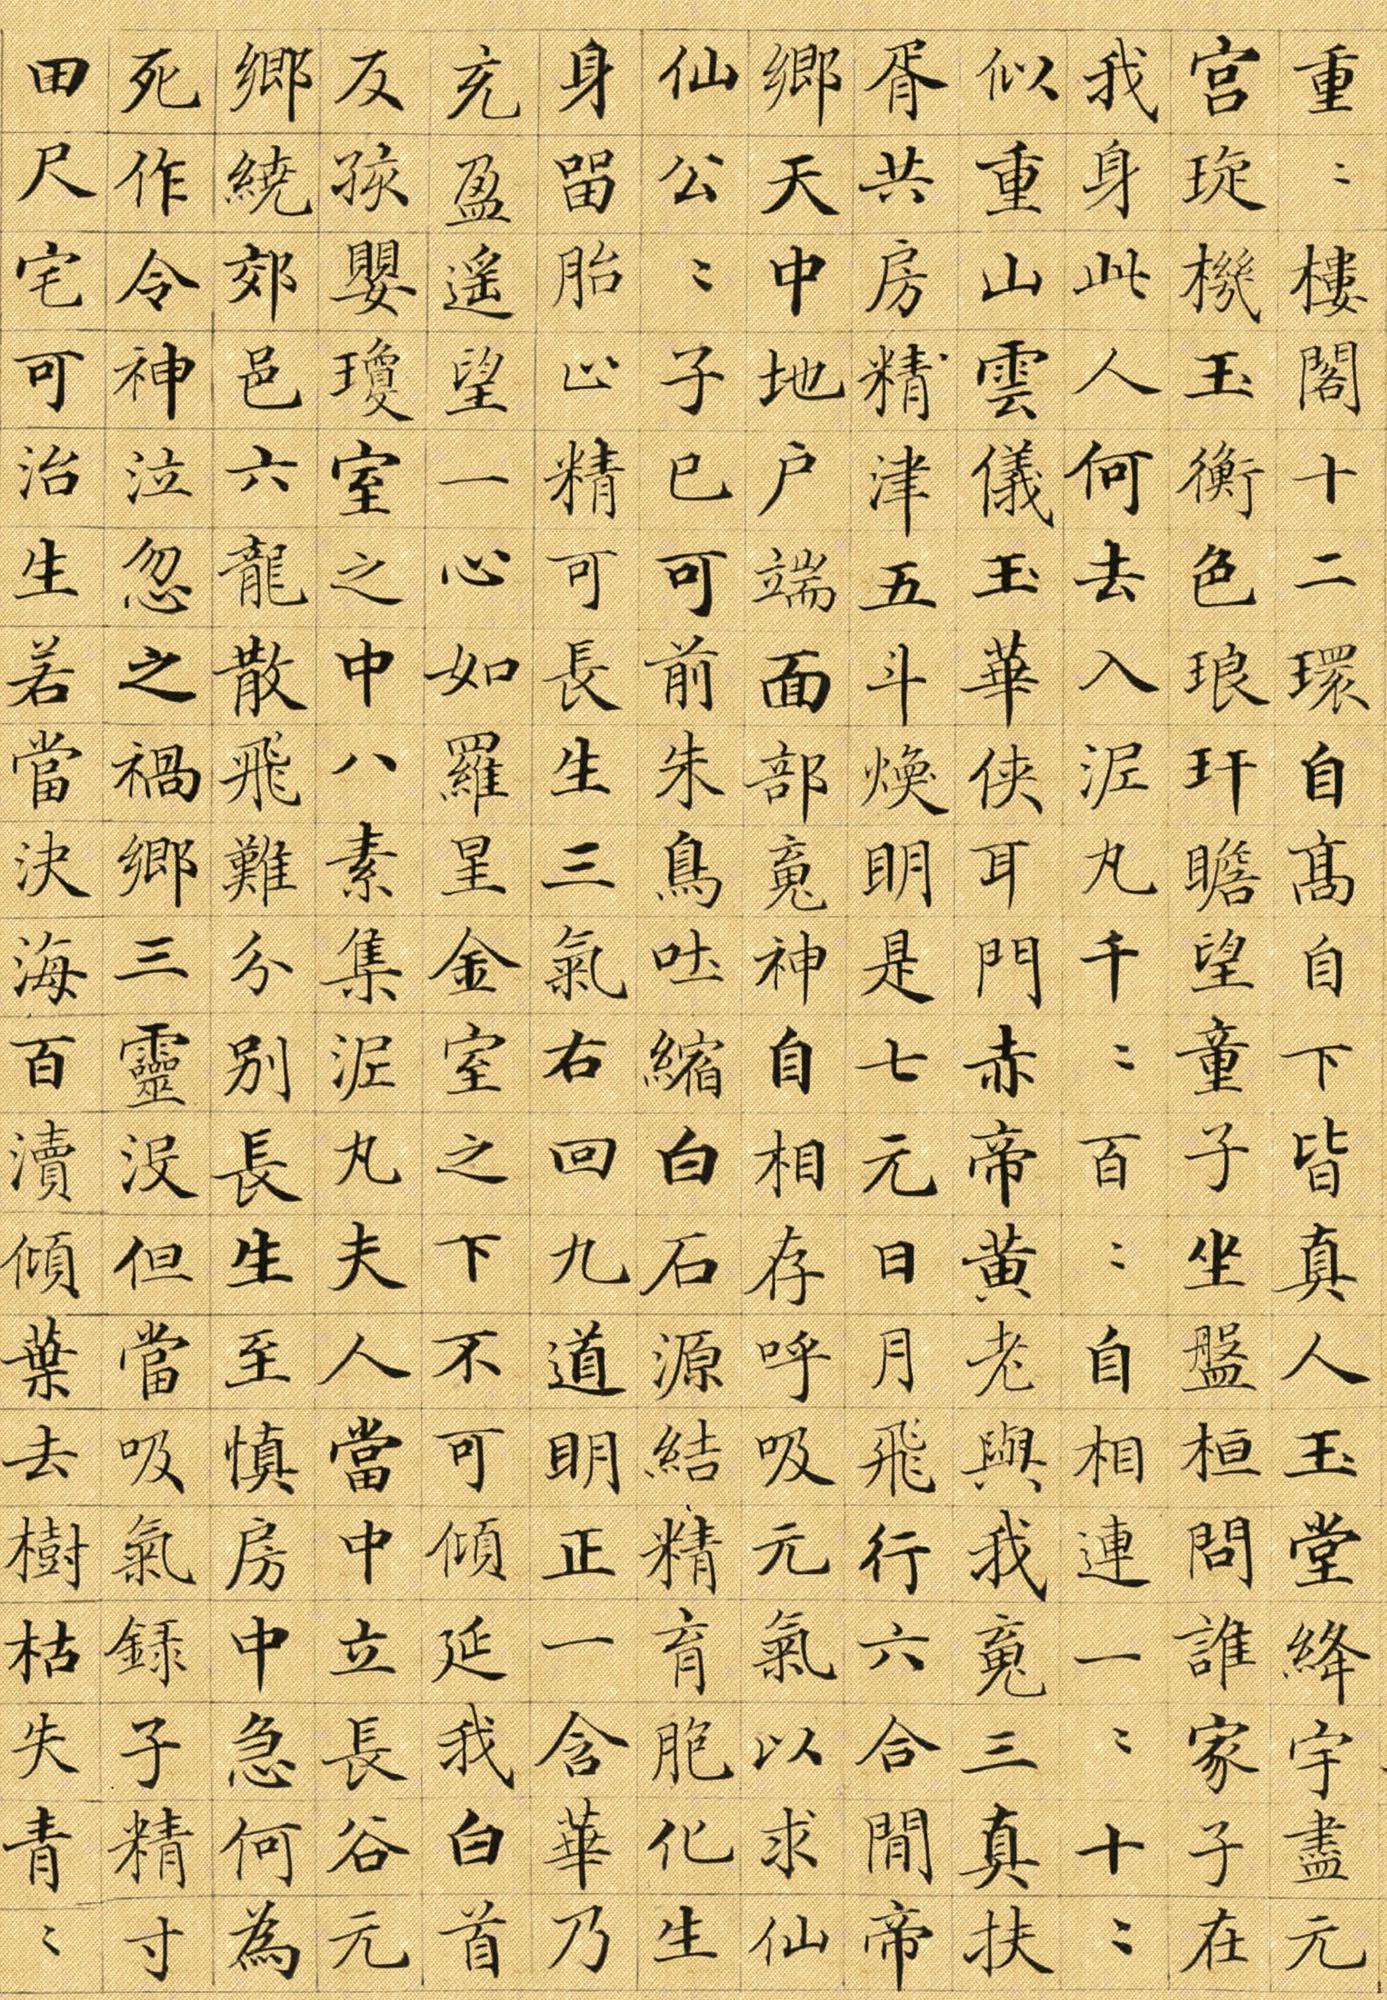 重〻樓閣十二環自髙自下皆真人玉堂絳宇盡元
宮琁機玉衡色琅玕瞻望童子坐盤桓問誰家子在
我身此人何去入泥丸千〻百〻自相連一〻十〻
似重山雲儀玉華俠耳門赤帝黃老與我䰟三真扶
胥共房精津五斗煥明是七元日月飛行六合間帝
鄉天中地户端面部䰟神自相存呼吸元氣以求仙
仙公〻子已可前朱鳥吐縮白石源結精育胞化生
身留胎止精可長生三氣右回九道明正一含華乃
充盈遥望一心如羅星金室之下不可傾延我白首
反孩嬰瓊室之中八素集泥丸夫人當中立長谷元
鄉繞郊邑六龍散飛難分别長生至慎房中急何為
死作令神泣忽之禍鄉三靈没但當吸氣録子精寸
田尺宅可治生若當決海百瀆傾葉去樹枯失青〻